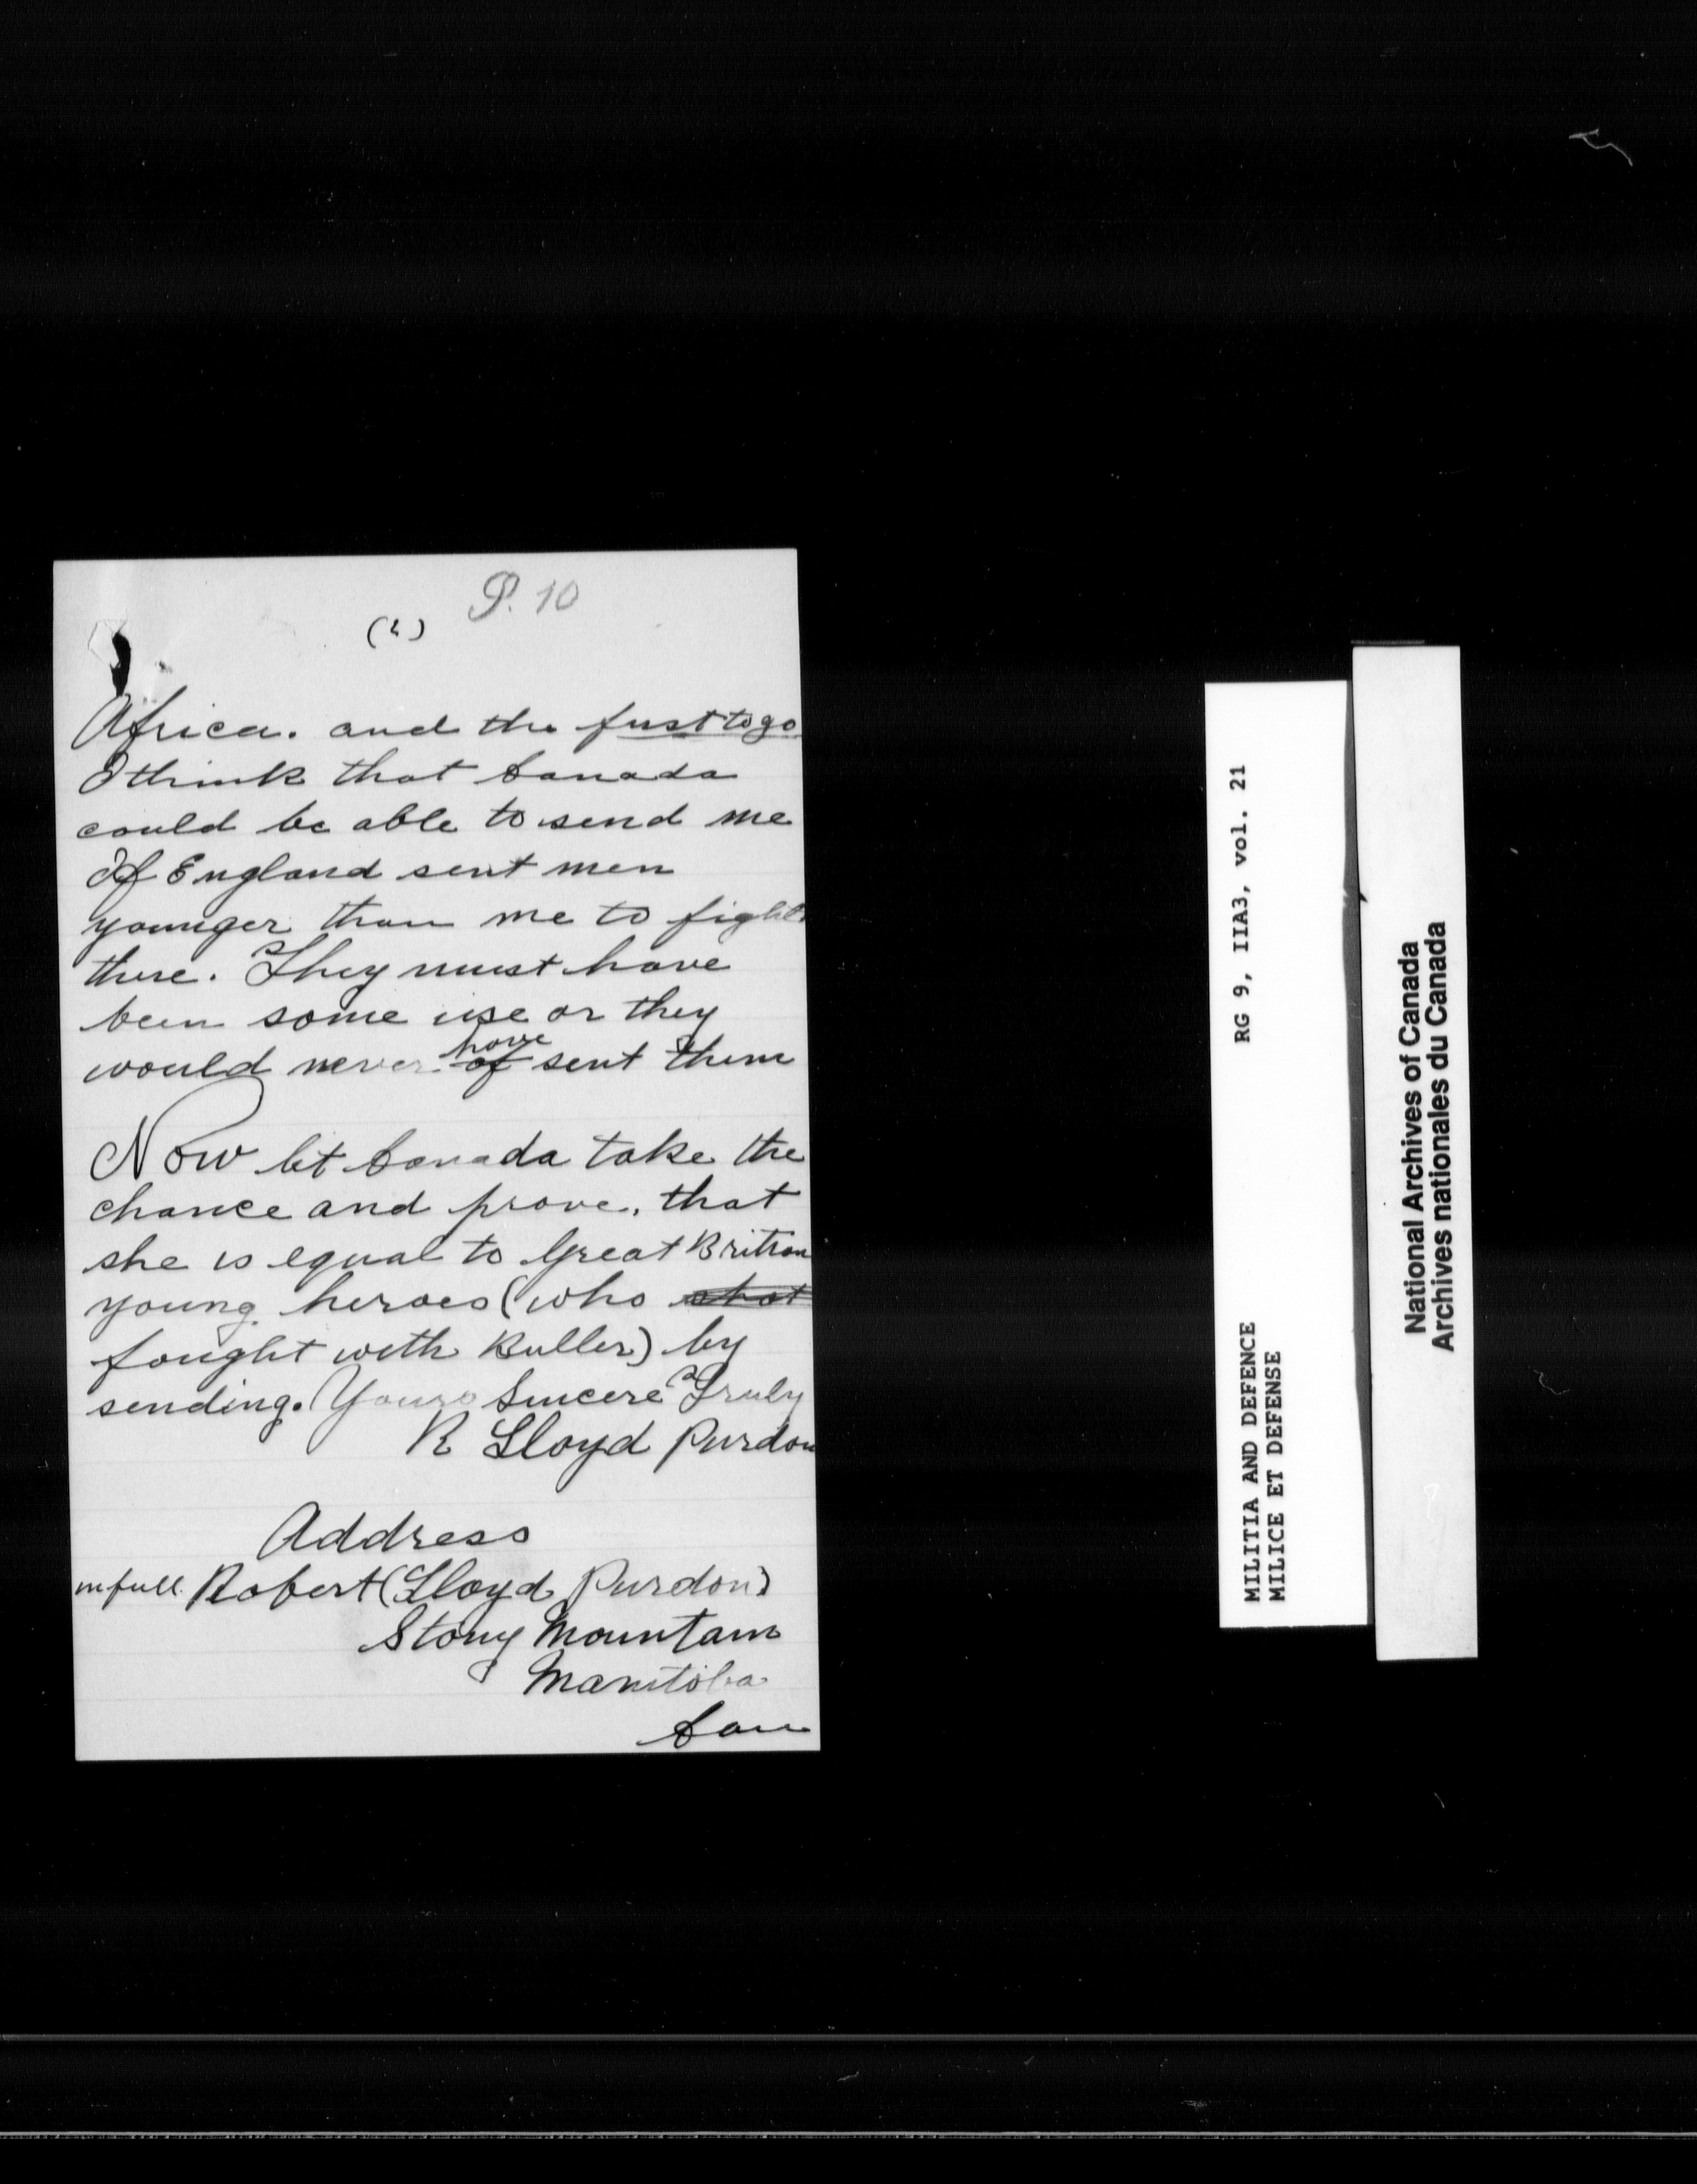 P. 10
(2)
Africa. and the first to go
I think that Canada
could be able to send me
If England sent men
younger than me to fight
there. They must have
been some use or they
would never of have sent them
Now let Canada take the
chance and prove, that
she is equal to Great Britian
young heroes (who shot
fought with Buller) by
sending. Yours Sincere Truly
R Lloyd Purdon
Address
in full Robert (Lloyd Purdon)
Stony Mountain
Manitoba
Can
MILITIA AND DEFENCE RG 9, IIA3, vol. 21
MILICE ET DEFENSE
National Archives of Canada
Archives nationales du Canada